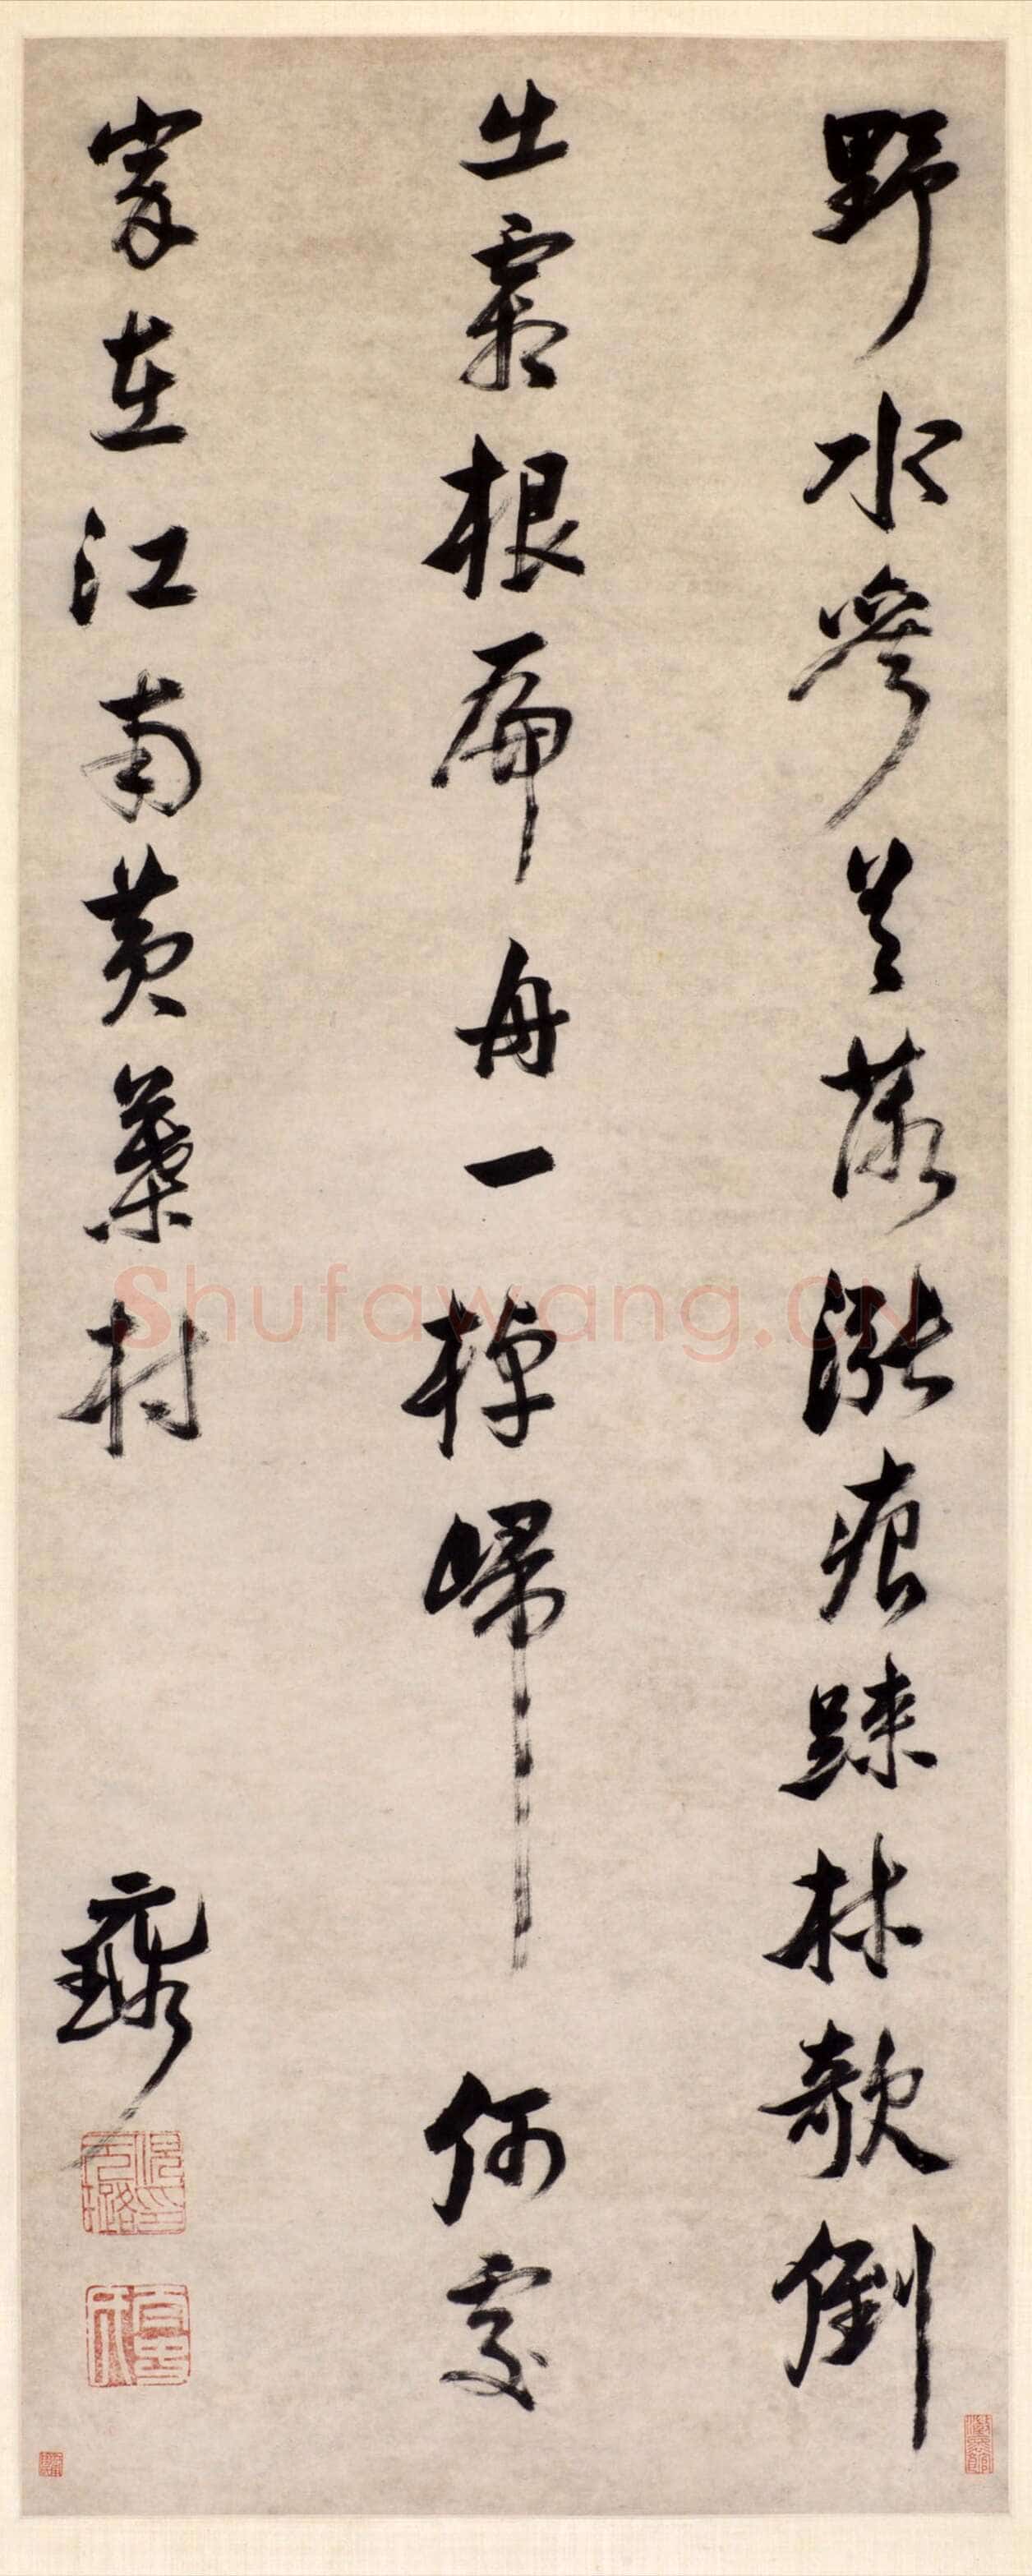 野水參差落漲痕踈林欹倒
出霜根扁舟一棹歸何處
家在江南黄葉村
璐
倪元璐印
Shufawang.CN